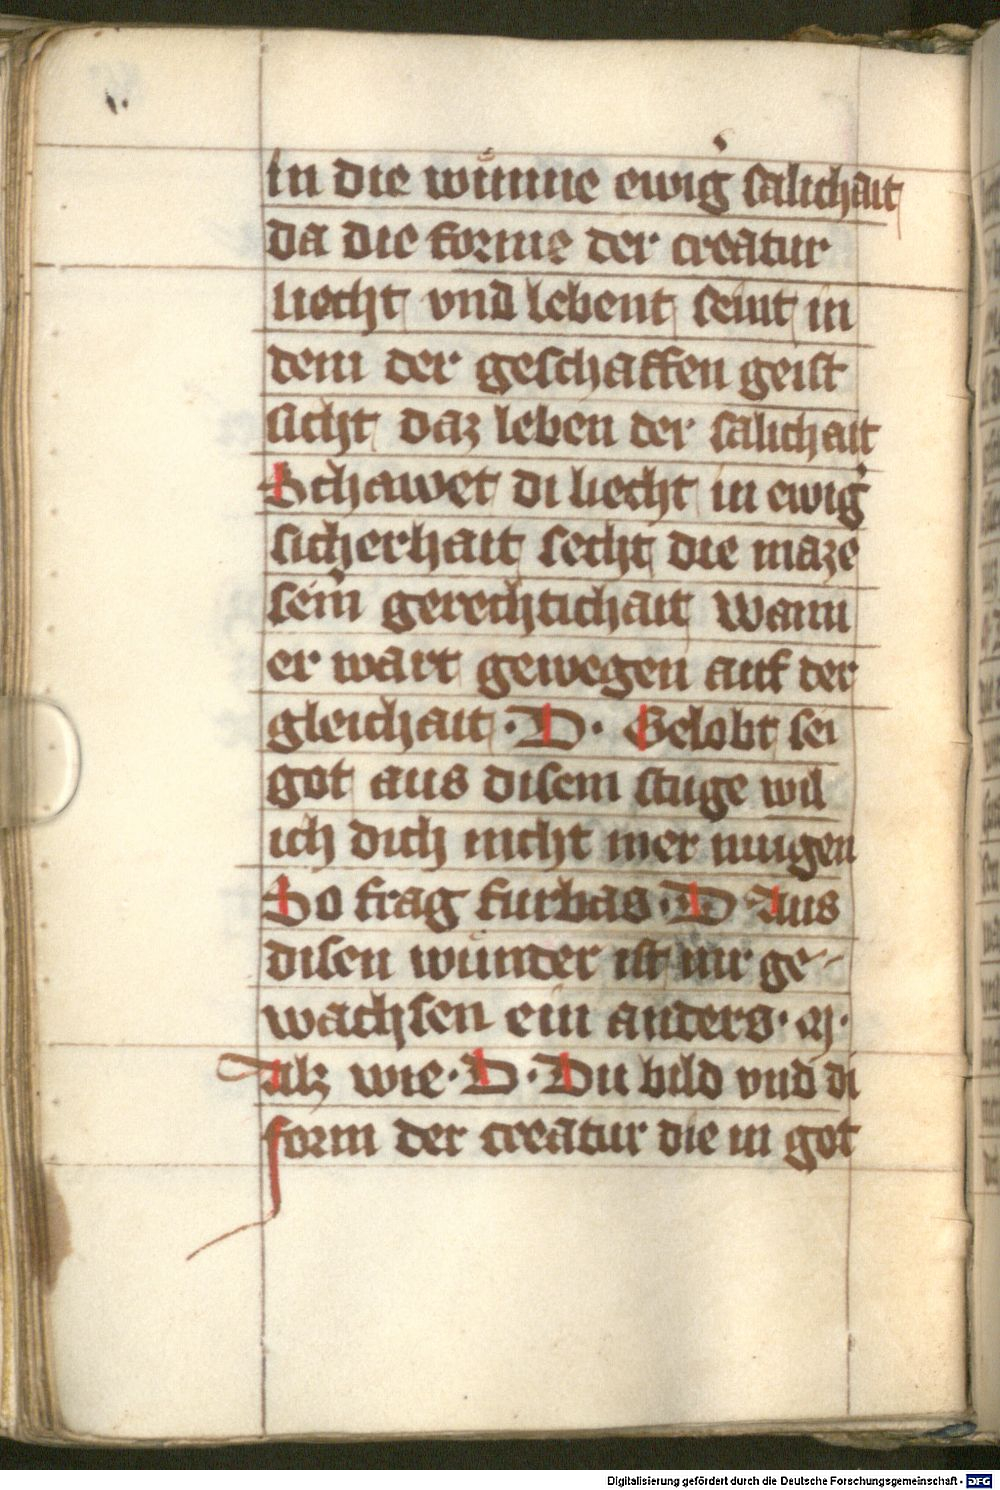 in die wunne ewig' salichait
da die forme der creatur
liecht vnd lebent seint in
dem der geschaffen geist
sicht daz leben der salichait
Schawet di liecht in ewig'
sicherhait secht die maze
sein' gerechtichait wann
er wart gewegen auf der
gleichait · D · Gelobt sei
got aus disem stuge wil
ich dich nicht mer mugen
So frag furbas · D · Aus
disen wunder ist mir ge-
wachsen ein anders · M ·
Alz wie · D · Du bild vnd di
form der creatur die in got
Digitalisierung gefördert durch die Deutsche Forschungsgemeinschaft - DFG